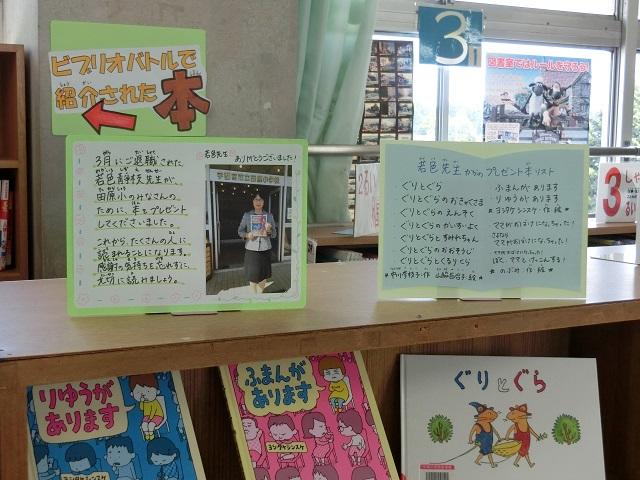 ビブリオバトルで
紹介された
本
3
図書室ではルールを守ろう!
3月にご退職された
田原小のみなさんの
ために、本をプレゼント
してくださいました。
これから、たくさんの人に
読まれる本となります。
感謝の気持ちを忘れずに、
大切に読みましょう。
若色先生
ありがとうございました!
若色先生からのプレゼント本リスト
ぐりとぐら
ぐりとぐらのおきゃくさま
ぐりとぐらのえんそく
ぐりとぐらのかいすいよく
ぐりとぐらとすみれちゃん
ぐりとぐらのおおそうじ
ぐりとぐらとくるりくら
ふまんがあります
りゆうがあります
ヨシタケシンスケ・作・絵
ママがおばけになっちゃった!
さよなら
ママがおばけになっちゃった!
ぼく、ママとけっこんする!
のぶみ・作・絵
3
りゆうが
あります
ヨシタケシンスケ
ふまんが
あります
ヨシタケシンスケ
ぐりとぐら